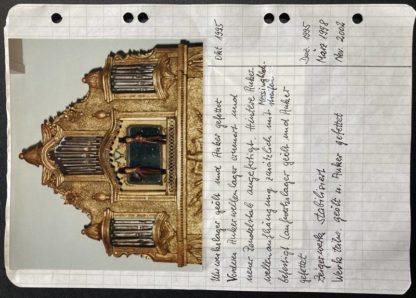 Uhrwerkslager geölt und Anker gefettet Okt 1995
Vorderes Ankerwellenlager erneuert und
neuer Pendelstab angefertigt Hintere Anker
wellenaufhängung zusätzlich mit
befestigt Laufwerkslager geölt und Anker
gefettet Dez. 1995
Zeigerwerk stabilisiert März 1998
Werk geölt u. Anker gefettet Nov. 2002